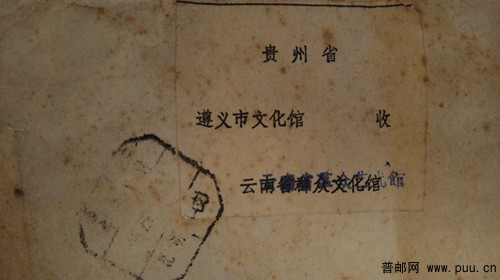 贵州省
遵义市文化馆 收
云南省群众文化馆
普邮网 www.puu.cn